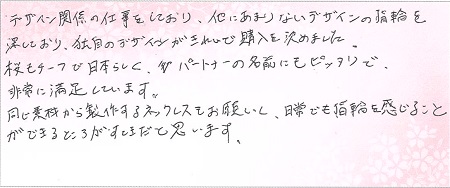 デザイン関係の仕事をしており、他にあまりないデザインの指輪を
探しており、独自のデザインがきれいで購入を決めました。
桜モチーフで日本らしく、パートナーの名前にもピッタリで、
非常に満足しています。
同じ素材から製作するネックレスもお願いし、日常でも指輪を感じること
ができるところがすてきだと思います。